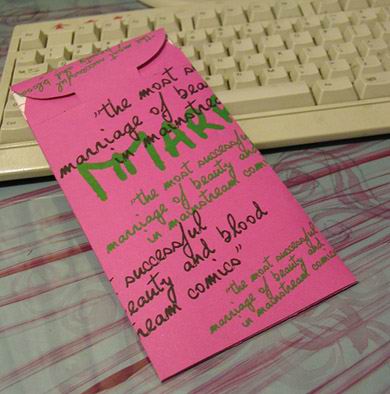 the most successful
"the most s
marriage of bea
in mainstream
MMARK
"the most successful
marriage of beauty and blood
in mainstream comics"
successful
eauty and blood
ream comics"
"the most successful
marriage of beauty and
in mainstream comics